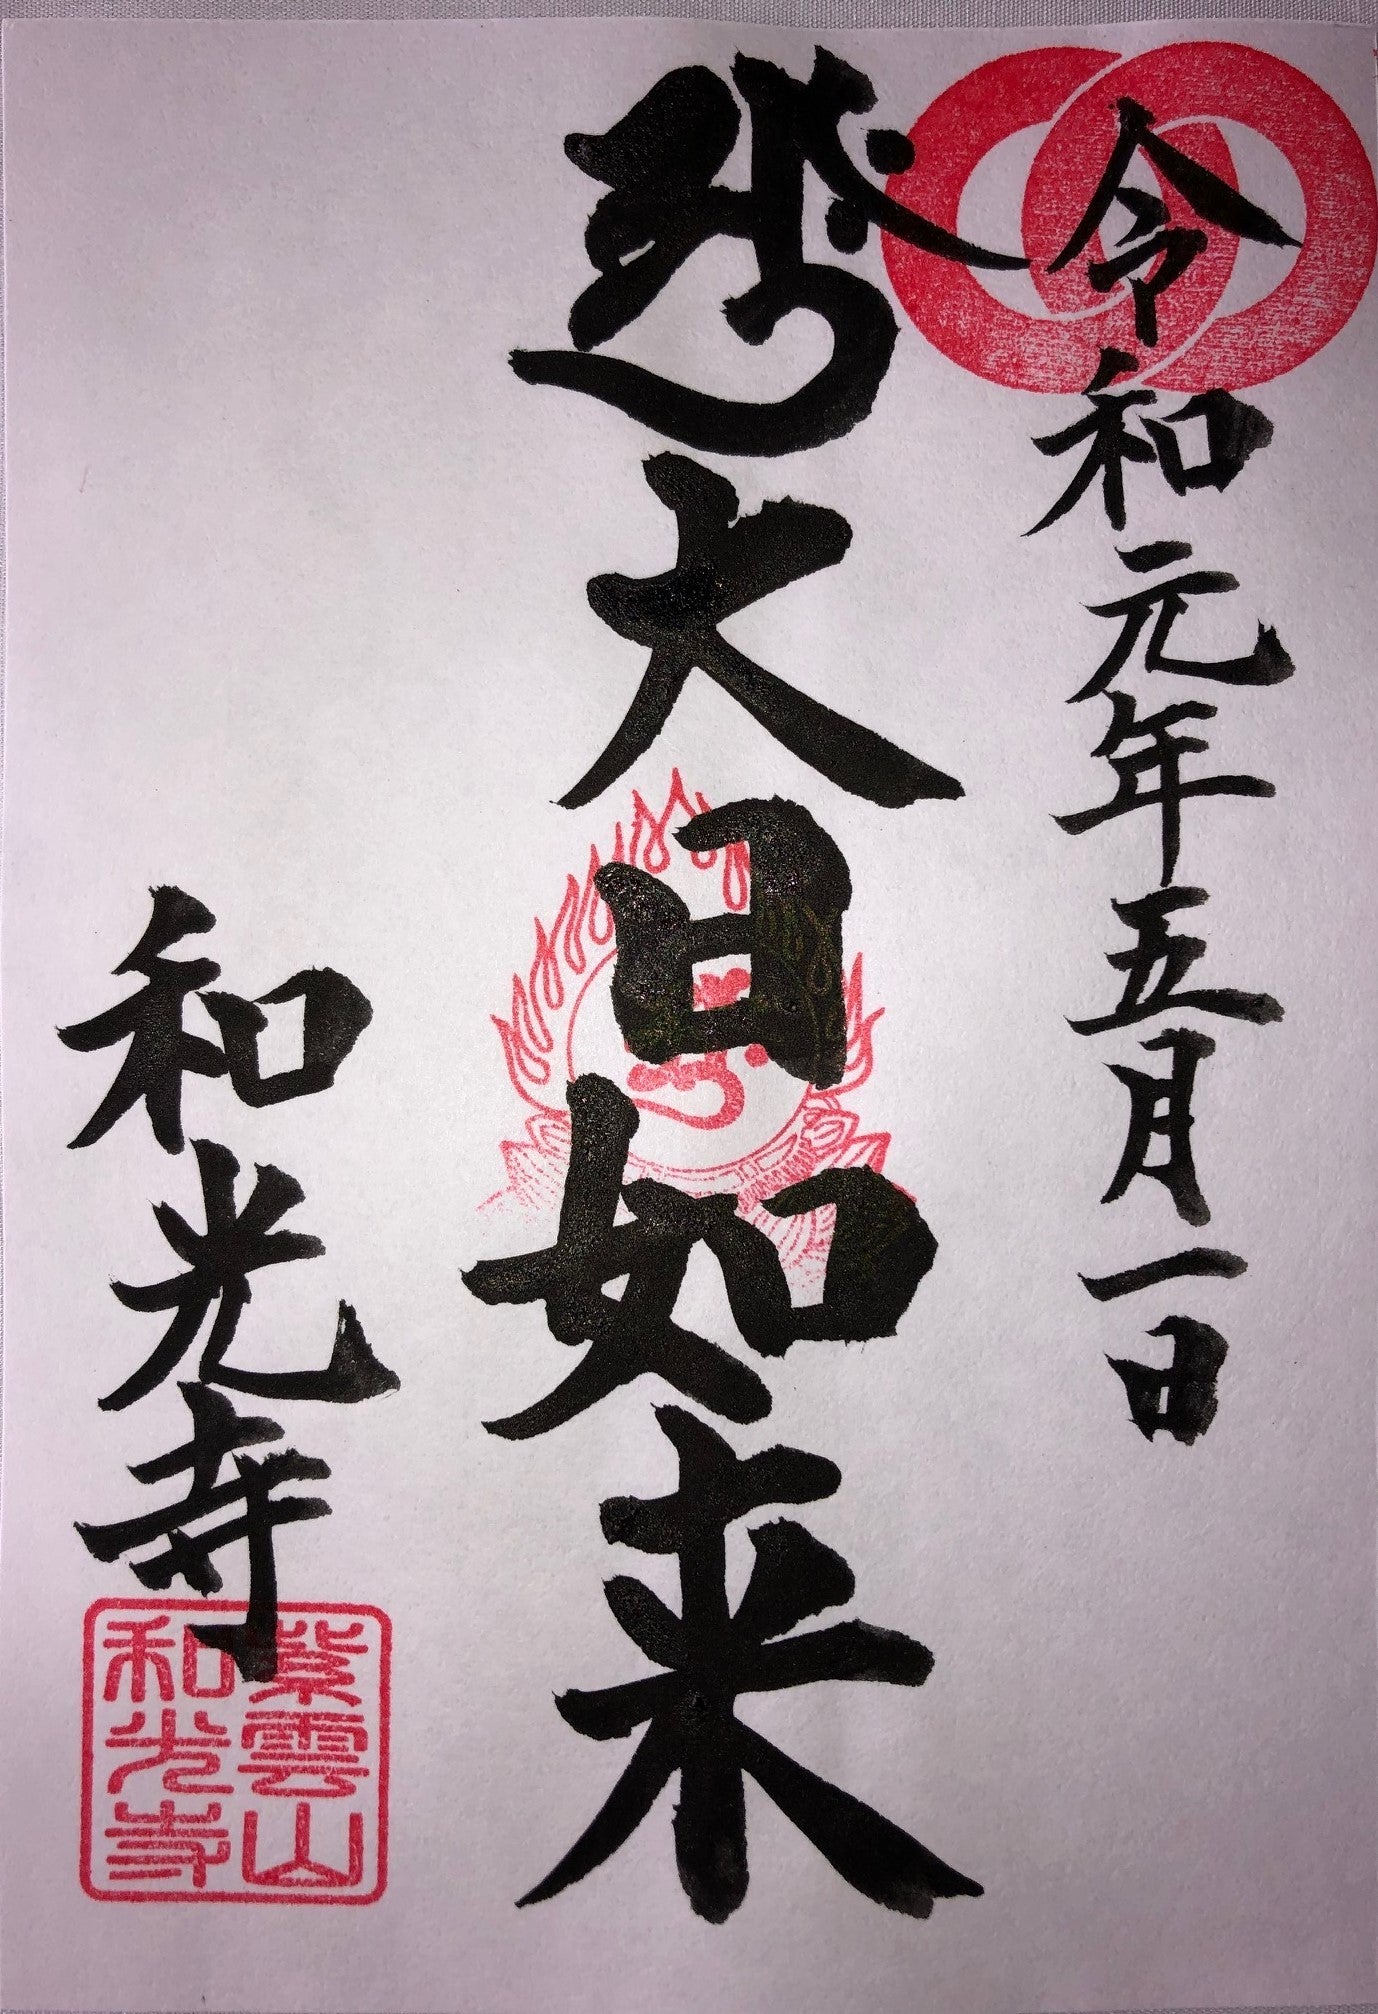 令和元年五月一日
大日如来
和光寺
紫雲山
和光寺